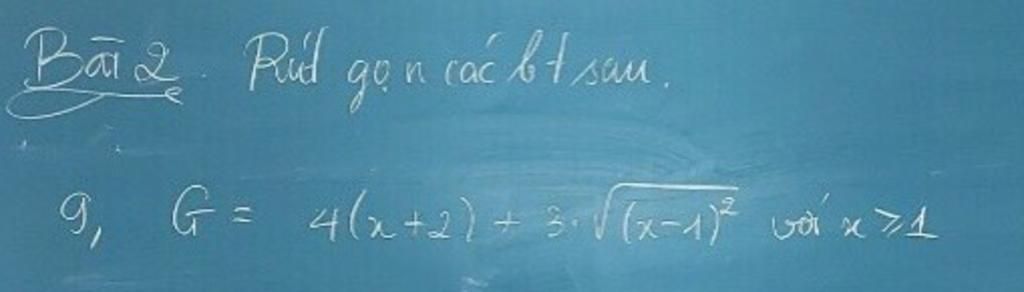 Bài 2. Rút gọn các bt sau.
g, G = 4(x+2) + 3.√(x-1)² với x ≥ 1